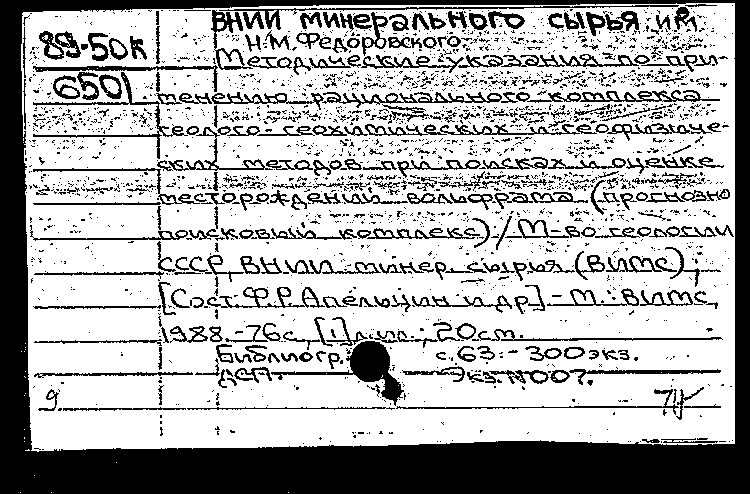 ВНИИ минерального сырья им.
89-50к
Н.М.Федоровского.
Методические указания по при-
6501
менению рационального комплекса
геолого-геохимических и геофизиче-
ских методов при поисках и оценке
месторождений вольфрама (прогнозно
поисковый комплекс) / М-во геологии
СССР, ВНИИ минер. сырья (ВИМС);
[Сост. Ф.Р. Апельцин и др.] - М.: ВИМС,
1988. - 76 с., [1] л. ил.; 20 см.
Библиогр. с. 63. - 300 экз.
ДСП. Экз. №007.
9